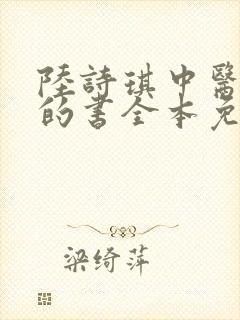 陸詩琪中醫
的書全本免
梁绮萍